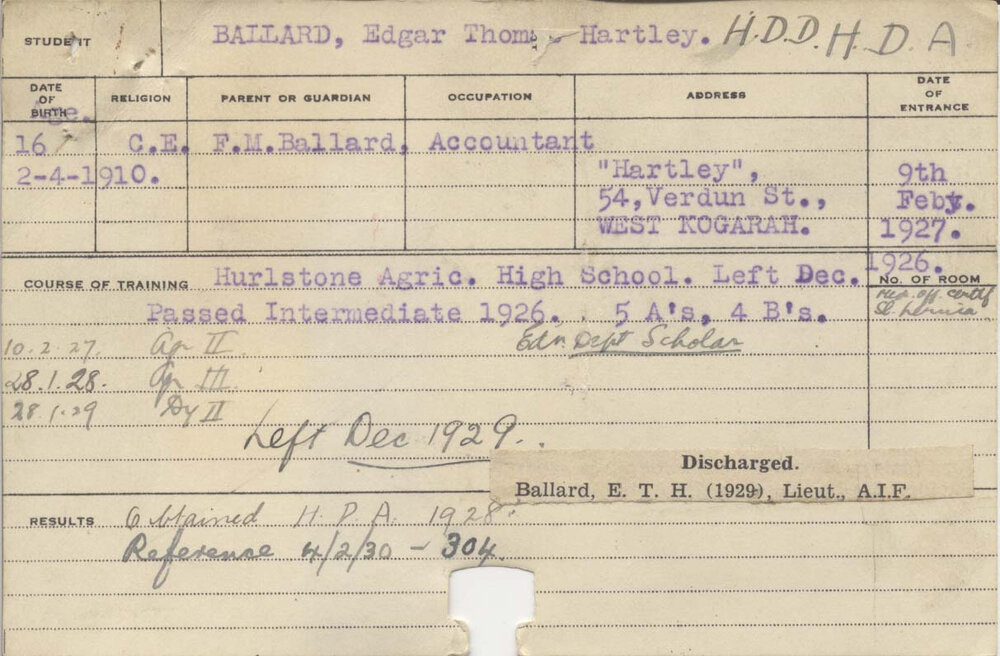 STUDENT BALLARD, Edgar Thomas Hartley. H.D.D. H.D.A.
DATE OF BIRTH RELIGION PARENT OR GUARDIAN OCCUPATION ADDRESS DATE OF ENTRANCE
Age.
16 C.E. F.M.Ballard, Accountant
2-4-1910. "Hartley", 9th
54,Verdun St., Feby.
WEST KOGARAH. 1927.
COURSE OF TRAINING Hurlstone Agric. High School. Left Dec. 1926. NO. OF ROOM
Passed Intermediate 1926. 5 A's, 4 B's.
10.2.27. Ag II Edn Dept Scholar
28.1.28. Ag III
28.1.29 Dy II
Left Dec 1929.
Discharged.
Ballard, E. T. H. (1929), Lieut., A.I.F.
RESULTS Obtained H.D.A. 1928.
Reference 4/2/30 - 304.